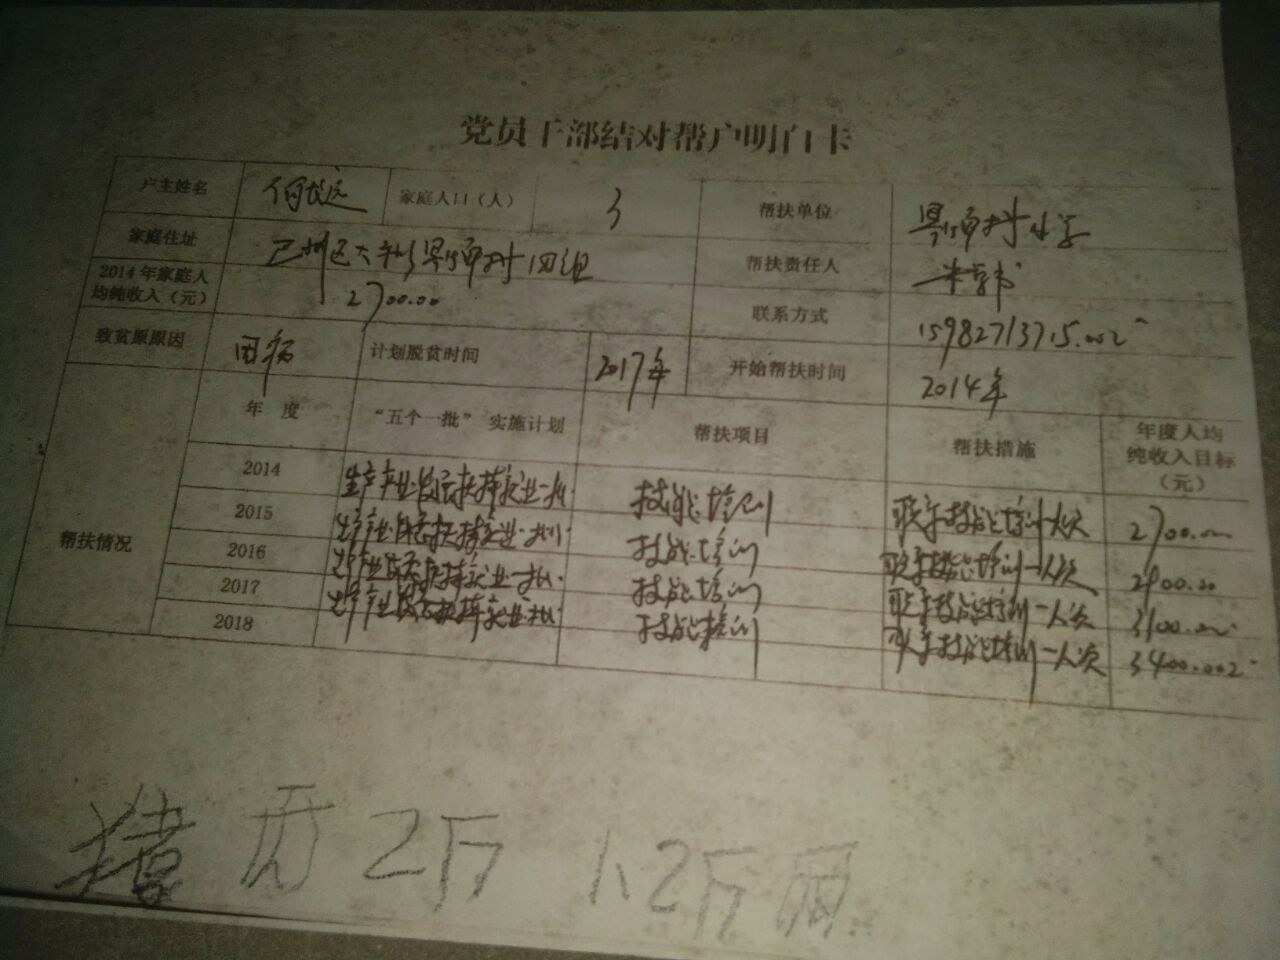 党员干部结对帮户明白卡
户主姓名 何长远 家庭人口（人） 3 帮扶单位 村小学
家庭住址 巴州区大和 村四组 帮扶责任人
2014年家庭人均纯收入（元） 2700.00 联系方式 15982713715
致贫原原因 因病 计划脱贫时间 2017年 开始帮扶时间 2014年
帮扶情况 年 度 “五个一批” 实施计划 帮扶项目 帮扶措施 年度人均纯收入目标（元）
2014 生产产业发展扶持就业一批 技能培训 联系技能培训一人次 2700.00
2015 生产产业发展扶持就业一批 技能培训 联系技能培训一人次 2900.00
2016 生产产业发展扶持就业一批 技能培训 联系技能培训一人次 3100.00
2017 生产产业发展扶持就业一批 技能培训 联系技能培训一人次 3400.00
2018
猪 2万 1.2万